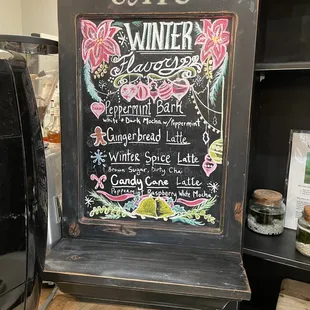 WINTER
Flavors
Peppermint Bark
White & Dark Mocha w/ Peppermint
Gingerbread Latte
Winter Spice Latte
Brown Sugar, Dirty Chai
Candy Cane Latte
Raspberry White Mocha